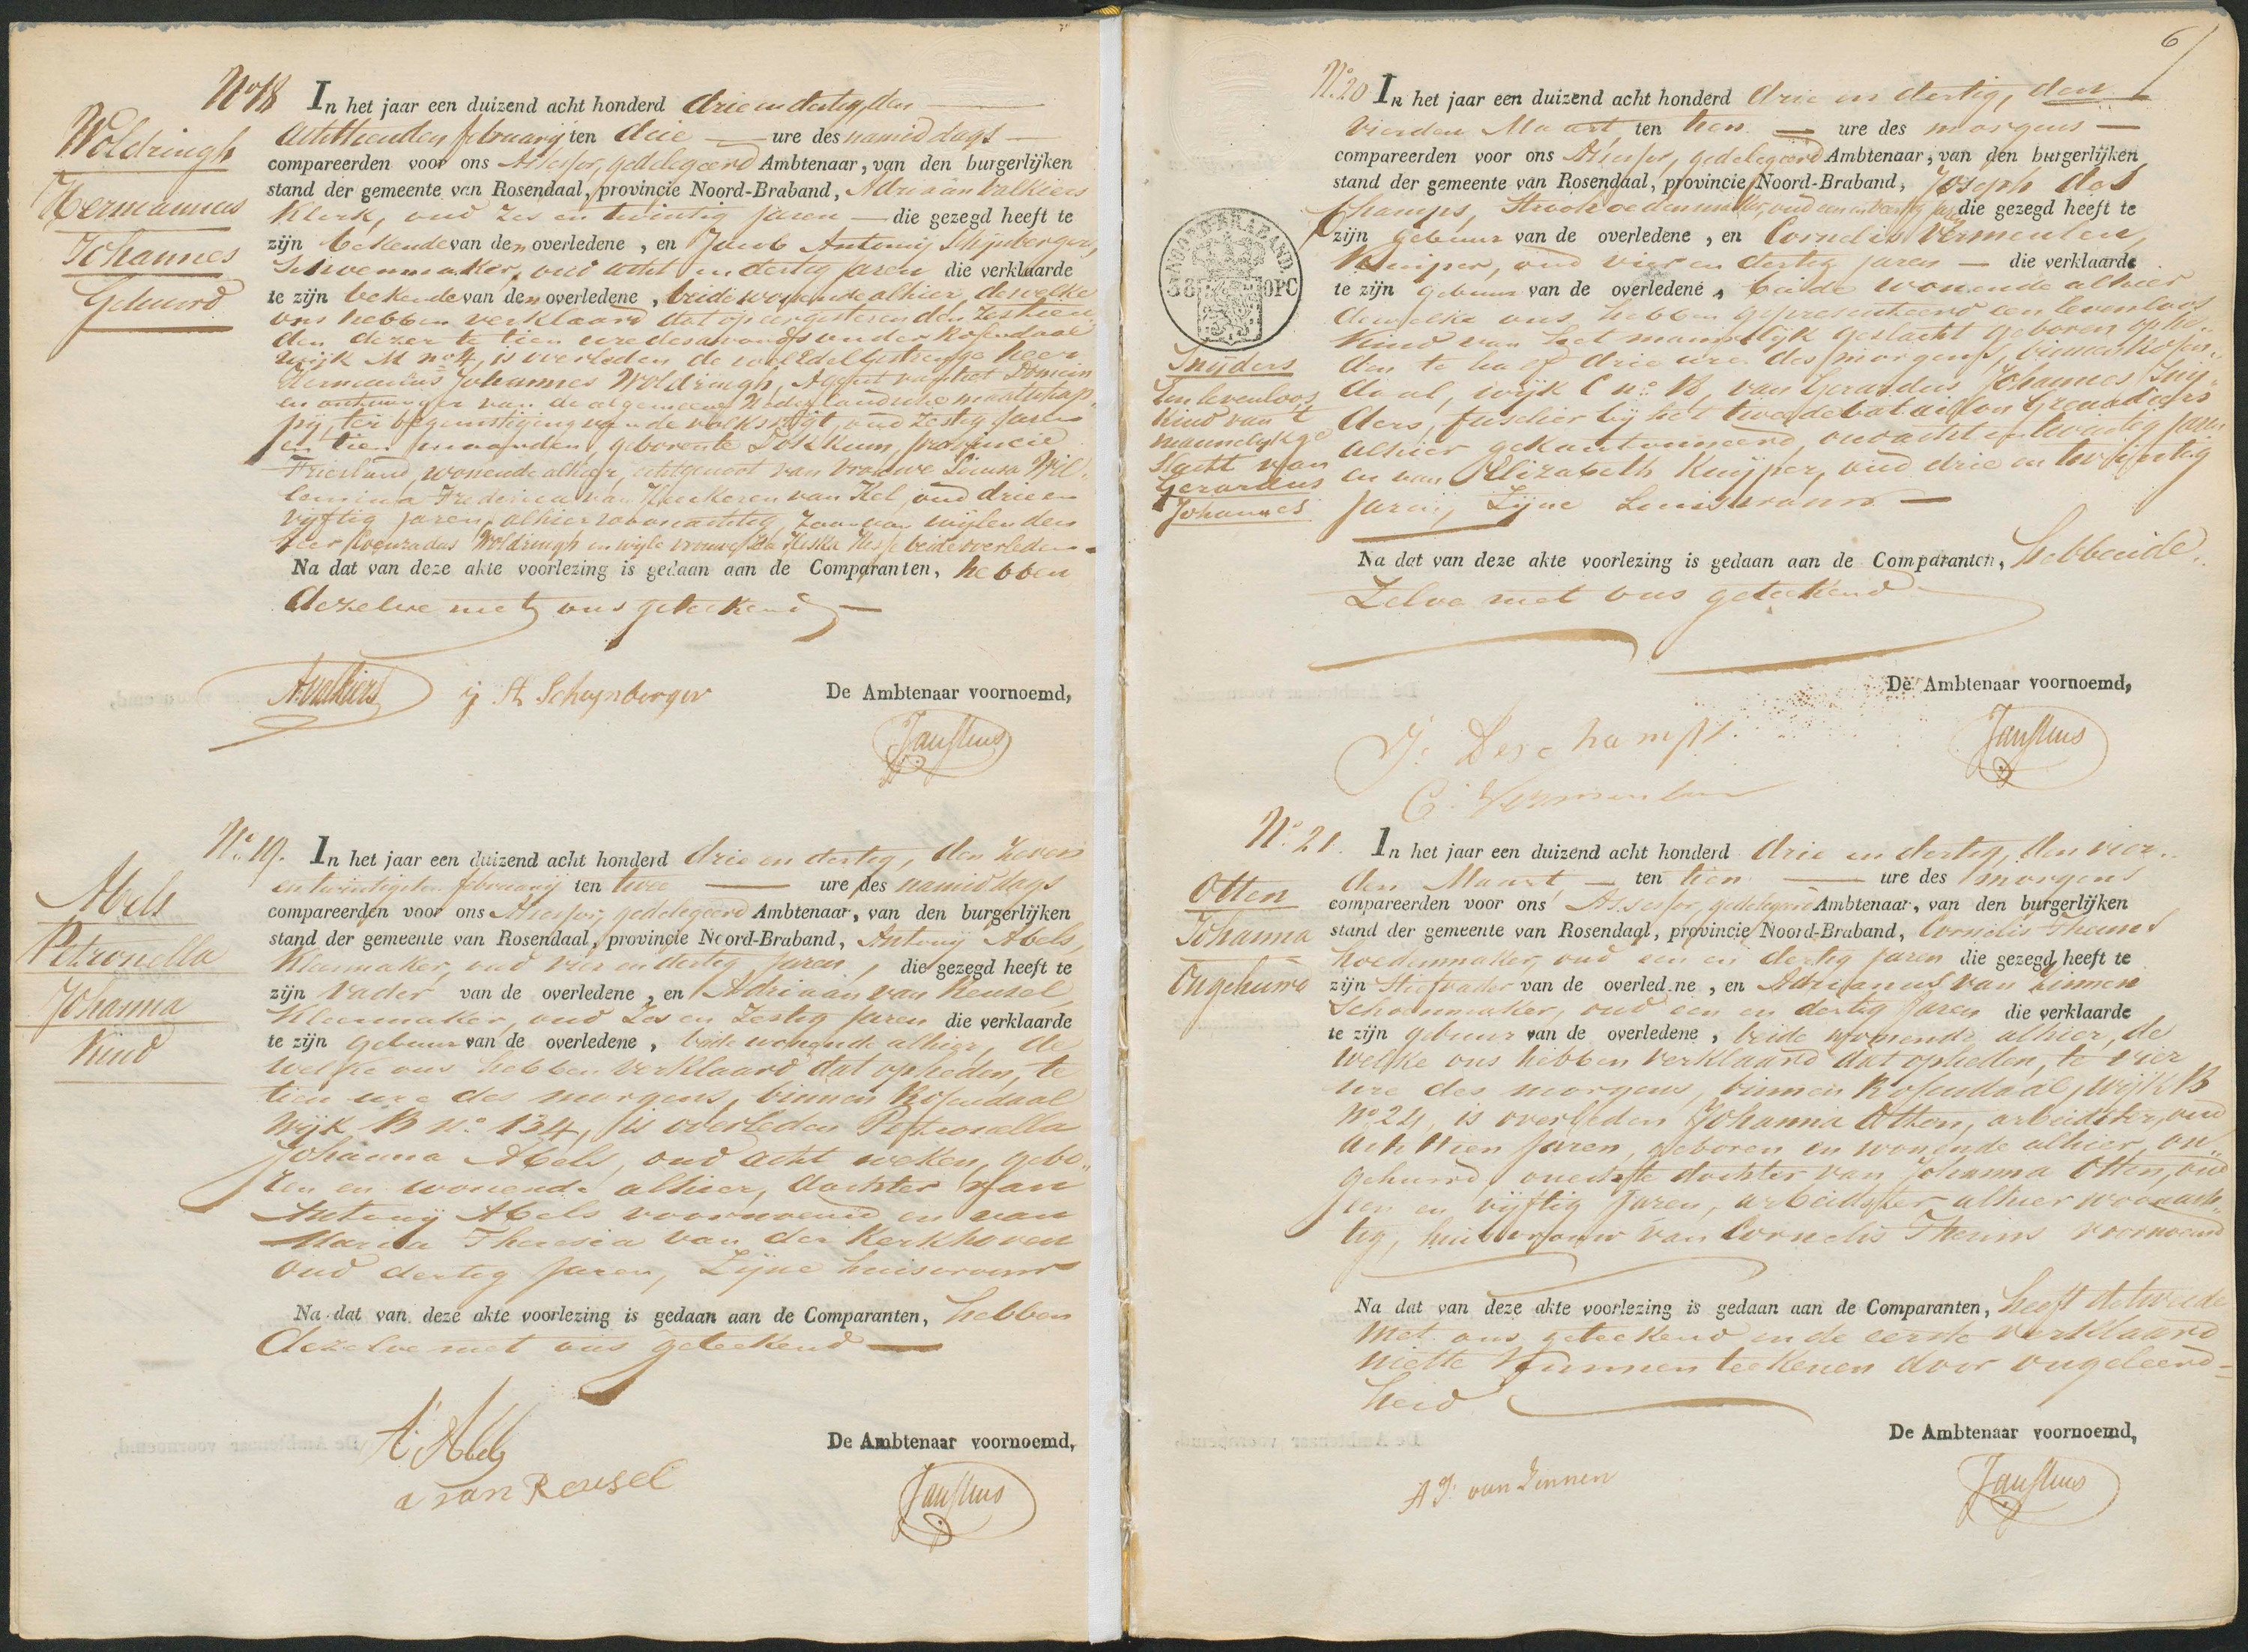 No 18 In het jaar een duizend acht honderd drie en dertig, den
achttienden february ten drie ure des namiddags
Woldringh
compareerden voor ons Assessor, gedelegeerd Ambtenaar, van den burgerlijken
stand der gemeente van Rosendaal, provincie Noord-Braband, Adriaan Valkiers
Hermannus
Klerk, oud zes en twintig jaren die gezegd heeft te
Johannes
zijn bekende van den overledene, en Jacob Antony Schijnberger,
Schoenmaker, oud acht en dertig jaren die verklaarde
Gehuwd
te zijn bekende van den overledene, beide wonende alhier, dewelke
ons hebben verklaard dat op eergisteren den zestien
den dezer te tien ure des avonds onder Rosendaal
wijk M no 4, is overleden de weledel gestrenge heer
Hermannus Johannes Woldringh, Agent van het Domein
en ontvanger van de algemeene Nederlandsche maatschap
pij, ter begunstiging van de volksvlijt, oud zestig jaren
en tien maanden, geboren te Dokkum, provincie
Friesland, wonende alhier, echtgenoot van Vrouwe Louisa Wil
lemina Frederica van Heeckeren van Kel, oud drie en
vijftig jaren, alhier woonachtig, zoon van wijlen den
heer Coenradus Woldringh en wijle vrouwe Hiska Hesse beide overleden
Na dat van deze akte voorlezing is gedaan aan de Comparanten, hebben
dezelve met ons geteekend
A. Valkiers
J. A. Scheynberger
De Ambtenaar voornoemd,
No. 19. In het jaar een duizend acht honderd drie en dertig, den zeven
en twintigsten february ten twee ure des namiddags
Abels
compareerden voor ons Assessor, gedelegeerd Ambtenaar, van den burgerlijken
stand der gemeente van Rosendaal, provincie Noord-Braband, Antony Abels,
Petronella
Kleermaker, oud vier en dertig jaren, die gezegd heeft te
zijn vader van de overledene, en Adriaan van Reusel
Johanna
Kleermaker, oud zes en zestig jaren die verklaarde
Kind
te zijn gebuur van de overledene, beide wonende alhier, de
welke ons hebben verklaard dat op heden, te
tien ure des morgens, binnen Rosendaal
Wijk B no. 134, is overleden Petronella
Johanna Abels, oud acht weken, gebo„
ren en wonende alhier, dochter van
Antony Abels voornoemd en van
Maria Theresia van der Kerkhoven
oud dertig jaren, zijne huisvrouw
Na dat van deze akte voorlezing is gedaan aan de Comparanten, hebben
dezelve met ons geteekend
A. Abels
a van Reusel
De Ambtenaar voornoemd,
6
No. 20 In het jaar een duizend acht honderd drie en dertig, den
vierden Maart ten tien ure des morgens
compareerden voor ons Assessor, gedelegeerd Ambtenaar, van den burgerlijken
stand der gemeente van Rosendaal, provincie Noord-Braband, Joseph des
champs, Stroohoedenmaker, oud een en veertig jaren die gezegd heeft te
zijn gebuur van de overledene, en Cornelis Vermeulen,
Kuiper, oud vier en dertig jaren die verklaarde
te zijn gebuur van de overledene, beide wonende alhier
dewelke ons hebben gepresenteerd een levenloos
kind van het mannelijk geslacht geboren op he„
NOORD-BRABAND.
Snijders
den te half drie ure des morgens, binnen Rosen„
Een levenloos
daal, wijk C no. 13, van Gerardus Johannes Snij„
kind van 't
ders, fuselier bij het tweede bataillon Grenadiers
mannelyk ge
alhier gekantonneerd, oud acht en twintig jaren
slacht van
Gerardus
en van Elizabeth Kuijper, oud drie en twintig
Johannes
jaren, zijne huisvrouw
Na dat van deze akte voorlezing is gedaan aan de Comparanten, hebben de„
zelve met ons geteekend
De Ambtenaar voornoemd,
J. Deschamps
C. Vermeulen
No. 21. In het jaar een duizend acht honderd drie en dertig, den vier„
den Maart ten tien ure des morgens
Otten
compareerden voor ons Assessor, gedelegeerd Ambtenaar, van den burgerlijken
Johanna
stand der gemeente van Rosendaal, provincie Noord-Braband, Cornelis Theuns
hoedenmaker, oud een en dertig jaren die gezegd heeft te
Ongehuwd
zijn Stiefvader van de overledene, en Adrianus van Ginnen
Schoenmaker, oud een en dertig jaren die verklaarde
te zijn gebuur van de overledene, beide wonende alhier, de
welke ons hebben verklaard dat op heden, te vier
ure des morgens, binnen Rosendaal, wijk B
No 24, is overleden Johanna Otten, arbeidster, oud
achttien jaren, geboren en wonende alhier, on„
gehuwd, onechte dochter van Johanna Otten, oud
een en vijftig jaren, arbeidster alhier woonach„
tig, huisvrouw van Cornelis Theuns voornoemd
Na dat van deze akte voorlezing is gedaan aan de Comparanten, heeft de tweede
met ons geteekend en de eerste verklaard
niet te kunnen teekenen door ongeleerd„
heid
De Ambtenaar voornoemd,